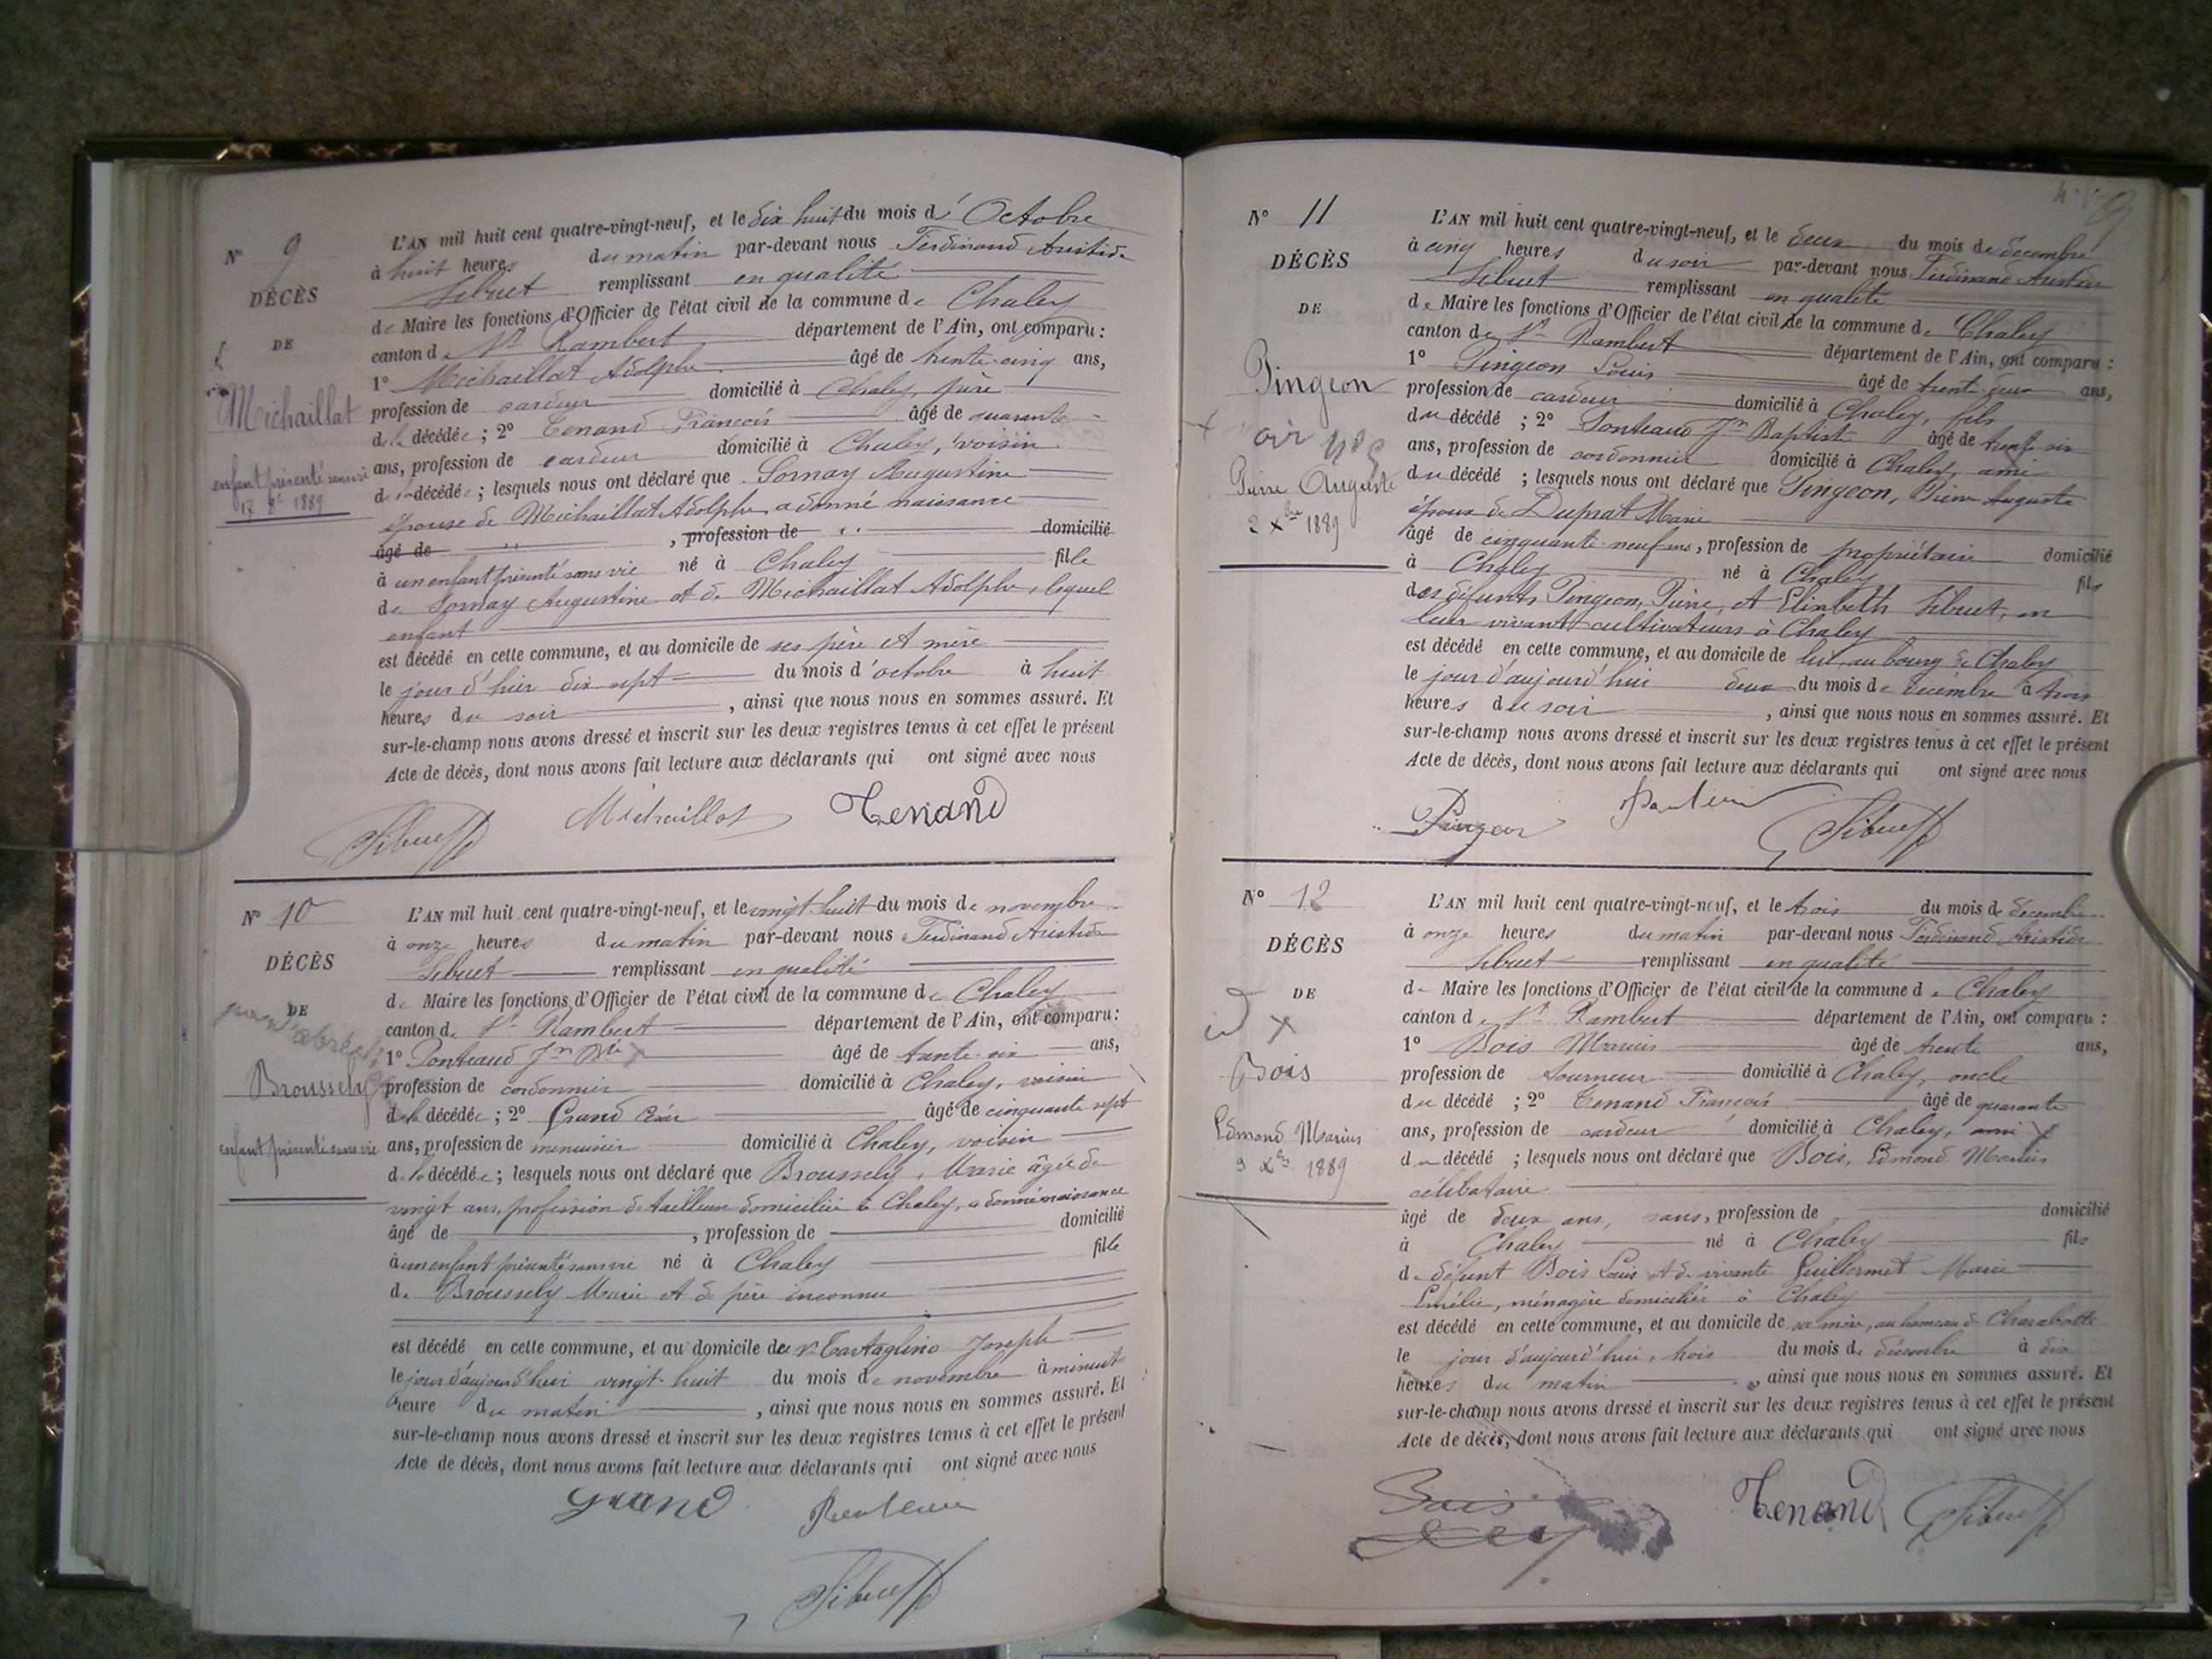 N° 9
DÉCÈS
DE
Michaillat
enfant présenté sans vie
17 8bre 1889
L'AN mil huit cent quatre-vingt-neuf, et le dix huit du mois d'Octobre
à huit heures du matin par-devant nous Ferdinand Aristide
Sibuet remplissant en qualité
de Maire les fonctions d'Officier de l'état civil de la commune de Chaley
canton de St Rambert département de l'Ain, ont comparu :
1° Michaillat Adolphe âgé de trente-cinq ans,
profession de cardeur domicilié à Chaley, père
de la décédée ; 2° Tenand François âgé de quarante
ans, profession de cardeur domicilié à Chaley, voisin
de la décédée ; lesquels nous ont déclaré que Sornay Augustine
épouse de Michaillat Adolphe, a donné naissance
âgé de , profession de domicilié
à un enfant présenté sans vie né à Chaley fille
de Sornay Augustine et de Michaillat Adolphe, lequel
enfant
est décédé en cette commune, et au domicile de ses père et mère
le jour d'hier dix sept du mois d'octobre à huit
heures du soir , ainsi que nous nous en sommes assuré. Et
sur-le-champ nous avons dressé et inscrit sur les deux registres tenus à cet effet le présent
Acte de décès, dont nous avons fait lecture aux déclarants qui ont signé avec nous
Michaillat Tenand
Sibuet
N° 10
DÉCÈS
DE
Broussely
enfant présenté sans vie
L'AN mil huit cent quatre-vingt-neuf, et le vingt-huit du mois de novembre
à onze heures du matin par-devant nous Ferdinand Aristide
Sibuet remplissant en qualité
de Maire les fonctions d'Officier de l'état civil de la commune de Chaley
canton de St Rambert département de l'Ain, ont comparu :
1° Ponteaud Jn Bte âgé de trente-six ans,
profession de cordonnier domicilié à Chaley, voisin
de la décédée ; 2° Grand César âgé de cinquante sept
ans, profession de menuisier domicilié à Chaley, voisin
de la décédée ; lesquels nous ont déclaré que Broussely, Marie âgée de
vingt ans, profession de tailleuse domiciliée à Chaley, a donné naissance
âgé de , profession de domicilié
à un enfant présenté sans vie né à Chaley fille
de Broussely Marie et de père inconnu
est décédé en cette commune, et au domicile du sr Tartaglino Joseph
le jour d'aujourd'hui vingt-huit du mois de novembre à minuit
heure du matin , ainsi que nous nous en sommes assuré. Et
sur-le-champ nous avons dressé et inscrit sur les deux registres tenus à cet effet le présent
Acte de décès, dont nous avons fait lecture aux déclarants qui ont signé avec nous
Grand
Sibuet
N° 11
DÉCÈS
DE
Pingeon
Pierre Auguste
2 Xbre 1889
L'AN mil huit cent quatre-vingt-neuf, et le deux du mois de décembre
à cinq heures du soir par-devant nous Ferdinand Aristide
Sibuet remplissant en qualité
de Maire les fonctions d'Officier de l'état civil de la commune de Chaley
canton de St Rambert département de l'Ain, ont comparu :
1° Pingeon Louis âgé de trente deux ans,
profession de cardeur domicilié à Chaley, fils
du décédé ; 2° Ponteaud Jn Baptiste âgé de trente six
ans, profession de cordonnier domicilié à Chaley, ami
du décédé ; lesquels nous ont déclaré que Pingeon, Pierre Auguste
époux de Duprat Marie
âgé de cinquante-neuf ans, profession de propriétaire domicilié
à Chaley né à Chaley fils
des défunts Pingeon, Pierre, et Elisabeth Sibuet, en
leur vivant cultivateurs à Chaley
est décédé en cette commune, et au domicile de lui, au bourg de Chaley
le jour d'aujourd'hui deux du mois de décembre à trois
heures du soir , ainsi que nous nous en sommes assuré. Et
sur-le-champ nous avons dressé et inscrit sur les deux registres tenus à cet effet le présent
Acte de décès, dont nous avons fait lecture aux déclarants qui ont signé avec nous
Pingeon
Sibuet
N° 12
DÉCÈS
DE
Bois
Edmond Marius
3 Xbre 1889
L'AN mil huit cent quatre-vingt-neuf, et le trois du mois de décembre
à onze heures du matin par-devant nous Ferdinand Aristide
Sibuet remplissant en qualité
de Maire les fonctions d'Officier de l'état civil de la commune de Chaley
canton de St Rambert département de l'Ain, ont comparu :
1° Bois Marius âgé de trente ans,
profession de tourneur domicilié à Chaley, oncle
du décédé ; 2° Tenand François âgé de quarante
ans, profession de cardeur domicilié à Chaley, ami
du décédé ; lesquels nous ont déclaré que Bois, Edmond Marius
célibataire
âgé de deux ans, sans, profession de domicilié
à Chaley né à Chaley fils
de défunt Bois Louis et de vivante Guillermet Marie
Emélie, ménagère domiciliée à Chaley
est décédé en cette commune, et au domicile de sa mère, au hameau de Charabotte
le jour d'aujourd'hui, trois du mois de décembre à dix
heures du matin , ainsi que nous nous en sommes assuré. Et
sur-le-champ nous avons dressé et inscrit sur les deux registres tenus à cet effet le présent
Acte de décès, dont nous avons fait lecture aux déclarants qui ont signé avec nous
Bois Tenand Sibuet